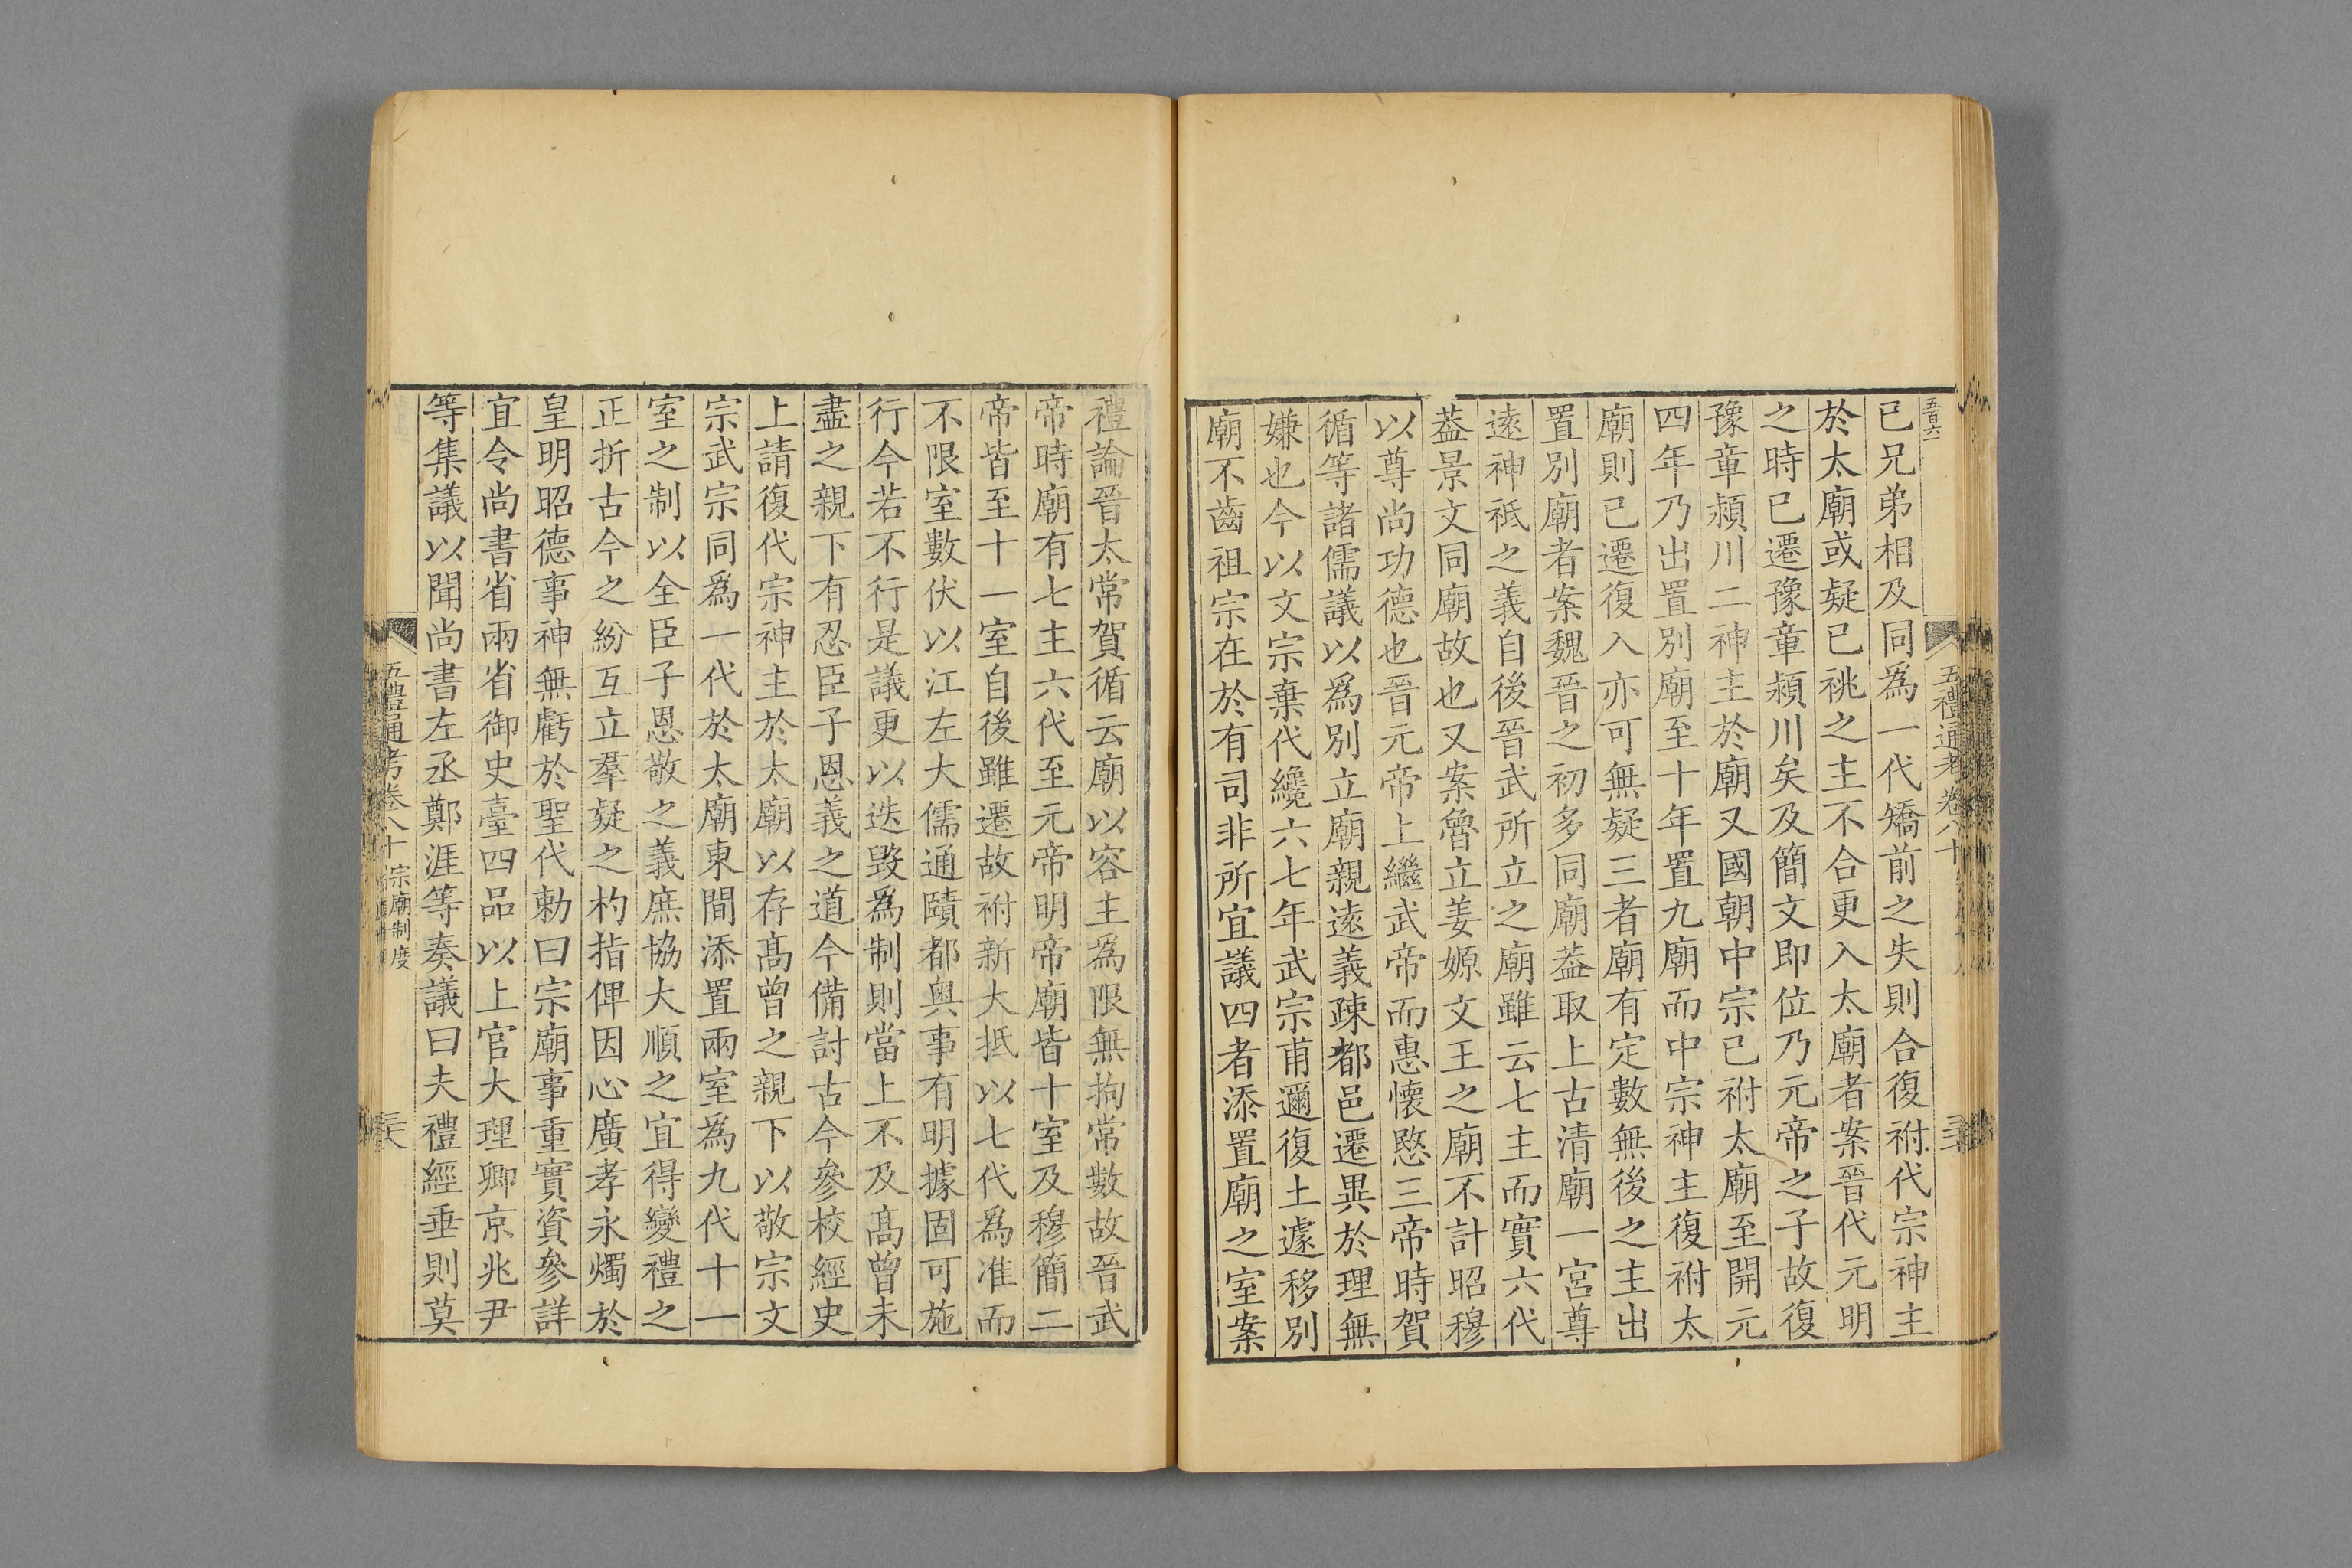 五百六
五禮通考卷八十
已兄弟相及同爲一代矯前之失則合復祔代宗神主
於太廟或疑已祧之主不合更入太廟者案晉代元明
之時已遷豫章潁川矣及簡文即位乃元帝之子故復
豫章潁川二神主於廟又國朝中宗已祔太廟至開元
四年乃出置別廟至十年置九廟而中宗神主復祔太
廟則已遷復入亦可無疑三者廟有定數無後之主出
置別廟者案魏晉之初多同廟葢取上古清廟一宮尊
遠神祗之義自後晉武所立之廟雖云七主而實六代
葢景文同廟故也又案魯立姜嫄文王之廟不計昭穆
以尊尚功德也晉元帝上繼武帝而惠懷愍三帝時賀
循等諸儒議以爲別立廟親遠義疎都邑遷異於理無
嫌也今以文宗棄代纔六七年武宗甫邇復土遽移別
廟不齒祖宗在於有司非所宜議四者添置廟之室案
禮論晉太常賀循云廟以容主爲限無拘常數故晉武
帝時廟有七主六代至元帝明帝廟皆十室及穆簡二
帝皆至十一室自後雖遷故祔新大抵以七代爲准而
不限室數伏以江左大儒通賾都奥事有明據固可施
行今若不行是議更以迭毁爲制則當上不及髙曾未
盡之親下有忍臣子恩義之道今備討古今參校經史
上請復代宗神主於太廟以存髙曾之親下以敬宗文
宗武宗同爲一代於太廟東間添置兩室爲九代十一
室之制以全臣子恩敬之義庶協大順之宜得變禮之
正折古今之紛互立羣疑之杓指俾因心廣孝永燭於
皇明昭德事神無虧於聖代勅曰宗廟事重實資參詳
宜令尚書省兩省御史臺四品以上官大理卿京兆尹
等集議以聞尚書左丞鄭涯等奏議曰夫禮經垂則莫
五禮通考卷八十 宗廟制度